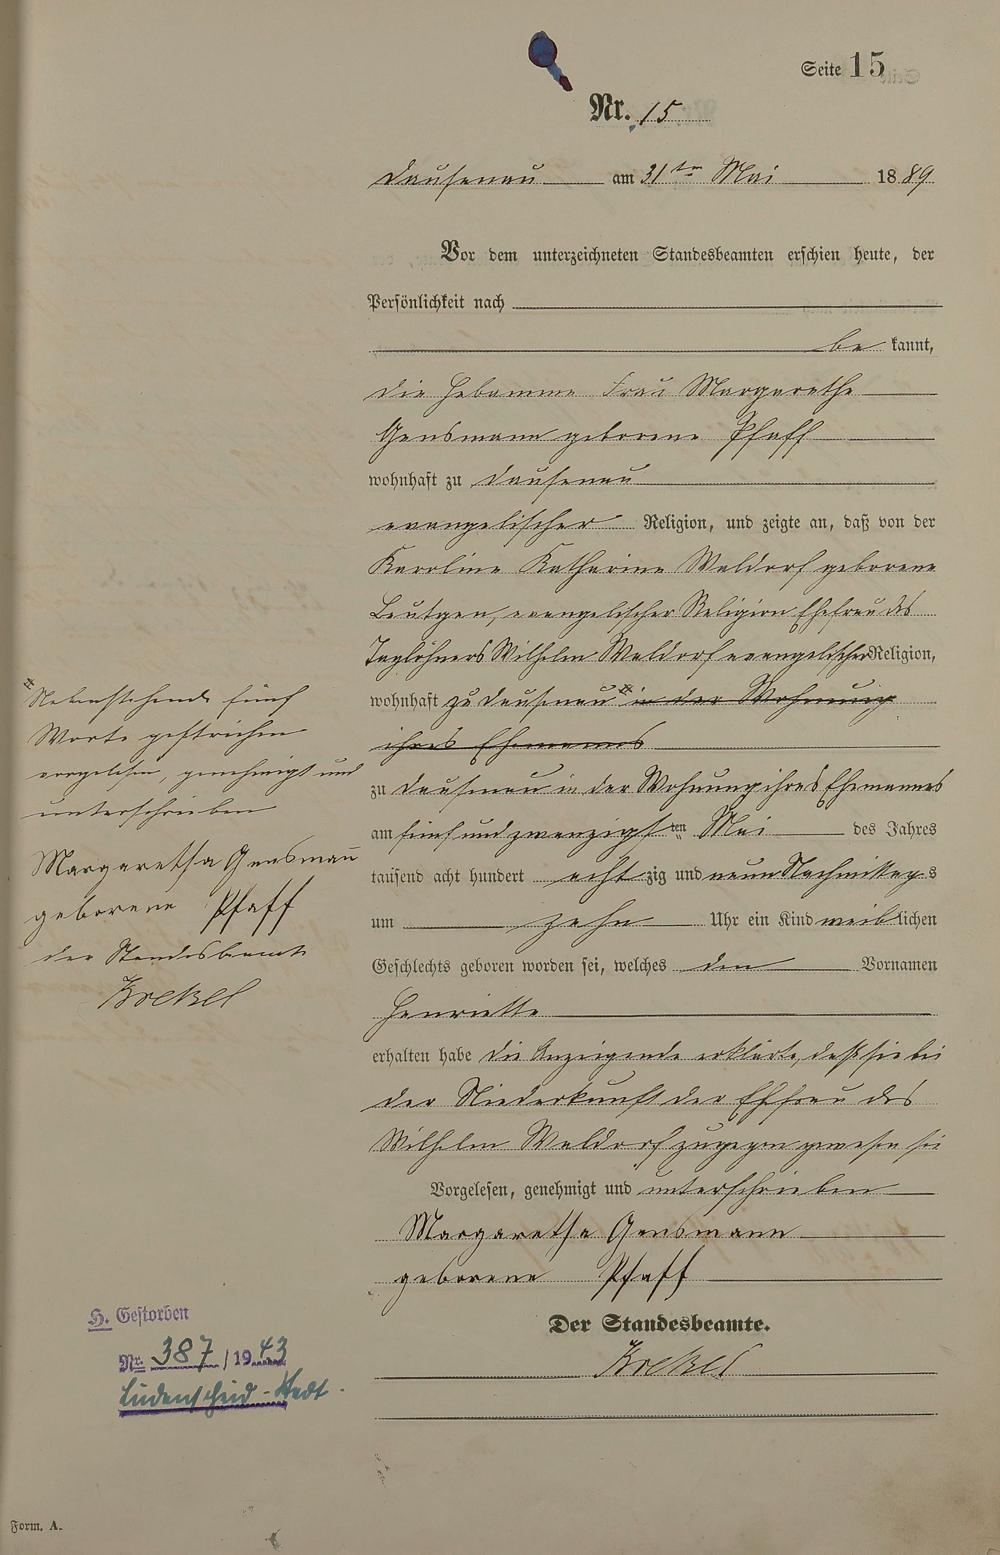 Seite 15
Nr. 15
Dausenau am 31ten Mai 1889
Vor dem unterzeichneten Standesbeamten erschien heute, der
Persönlichkeit nach
be kannt,
die Hebamme Frau Margarethe
Gensmann geborene Pfaff
wohnhaft zu Dausenau
evangelischer Religion, und zeigte an, daß von der
Karoline Katharine Waldorf geborene
Leutgen, evangelischer Religion Ehefrau des
Taglöhners Wilhelm Waldorf evangelischer Religion,
wohnhaft zu Dausenau in der Wohnung
ihres Ehemannes
zu Dausenau in der Wohnung ihres Ehemannes
am fünf und zwanzigsten Mai des Jahres
tausend acht hundert acht zig und neun Nachmittags
um zehn Uhr ein Kind weiblichen
Geschlechts geboren worden sei, welches den Vornamen
Henriette
erhalten habe die Anzeigende erklärte, daß sie bei
der Niederkunft der Ehefrau des
Wilhelm Waldorf zugegen gewesen sei
Vorgelesen, genehmigt und unterschrieben
Margaretha Gensmann
geborene Pfaff
Der Standesbeamte.
Nebenstehende fünf
Worte gestrichen
vorgelesen, genehmigt und
unterschrieben
Margaretha Gensmann
geborene Pfaff
der Standesbeamte
H. Gestorben
Nr. 387/1943
Lüdenscheid-Stadt.
Form. A.